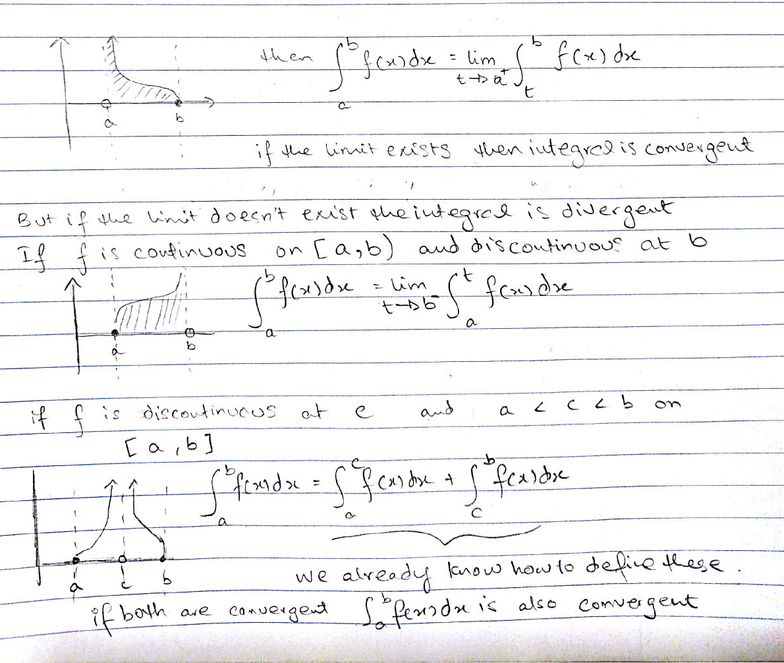 then ∫_a^b f(x)dx = lim_{t→a⁺} ∫_t^b f(x) dx
a b
if the limit exists then integral is convergent
But if the limit doesn't exist the integral is divergent
If f is continuous on [a,b) and discontinuous at b
∫_a^b f(x)dx = lim_{t→b⁻} ∫_a^t f(x)dx
a b
if f is discontinuous at c and a < c < b on
[a,b]
∫_a^b f(x)dx = ∫_a^c f(x)dx + ∫_c^b f(x)dx
a c b
we already know how to define these.
if both are convergent ∫_a^b f(x)dx is also convergent